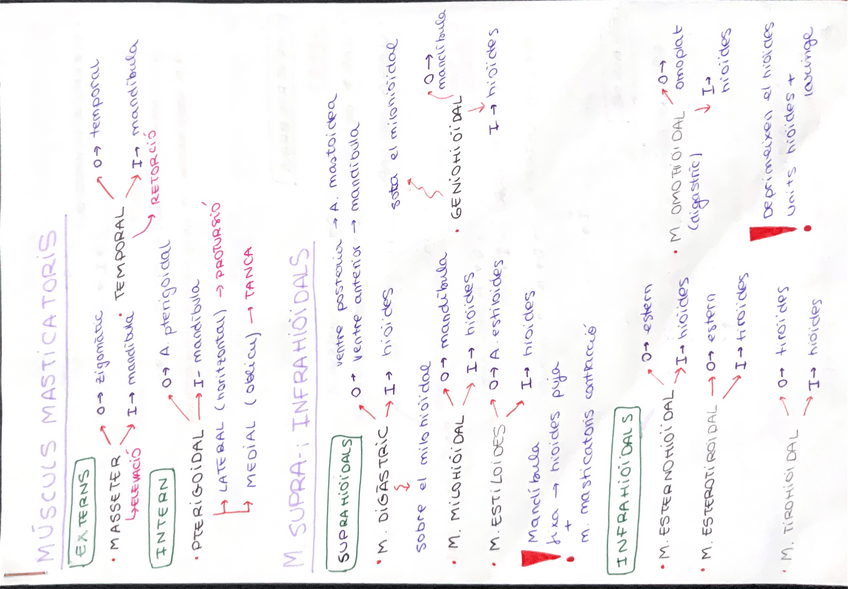 MÚSCULS MASTICATORIS
EXTERNS
• MASSETER
O→ zigomàtic
I→ mandíbula
↳ELEVACIÓ
• TEMPORAL
O→ temporal
I→ mandíbula
↳ RETORCIÓ
INTERN
• PTERIGOÏDAL
O→ A. pterigoidal
I- mandíbula
↳ LATERAL (horitzontal) → PROTURSIÓ
↳ MEDIAL (oblicu) → TANCA
M SUPRA- i INFRAHIOÏDALS
SUPRAHIOÏDALS
• M. DIGÀSTRIC
O→ ventre posterior → A. mastoidea
ventre anterior → mandíbula
I→ hioides
sobre el milohioïdal
• M. MILOHIOÏDAL
O→ mandíbula
I→ hioides
• GENIOHIOÏDAL
O→ mandíbula
I→ hioides
sota el milohioïdal
• M. ESTILOIDES
O→ A. estiloides
I→ hioides
! Mandíbula
fixa → hioides puja
+
m. masticatoris contracció
INFRAHIOÏDALS
• M. ESTERNOHIOÏDAL
O→ estern
I→ hioides
• M. OMOHIOÏDAL
(digastric)
O→ omoplat
I→ hioides
• M. ESTEROTIROIDAL
O→ estern
I→ tiroides
• M. TIROHIOIDAL
O→ tiroides
I→ hioides
! Deprimeixen el hioides
units hioides +
laringe